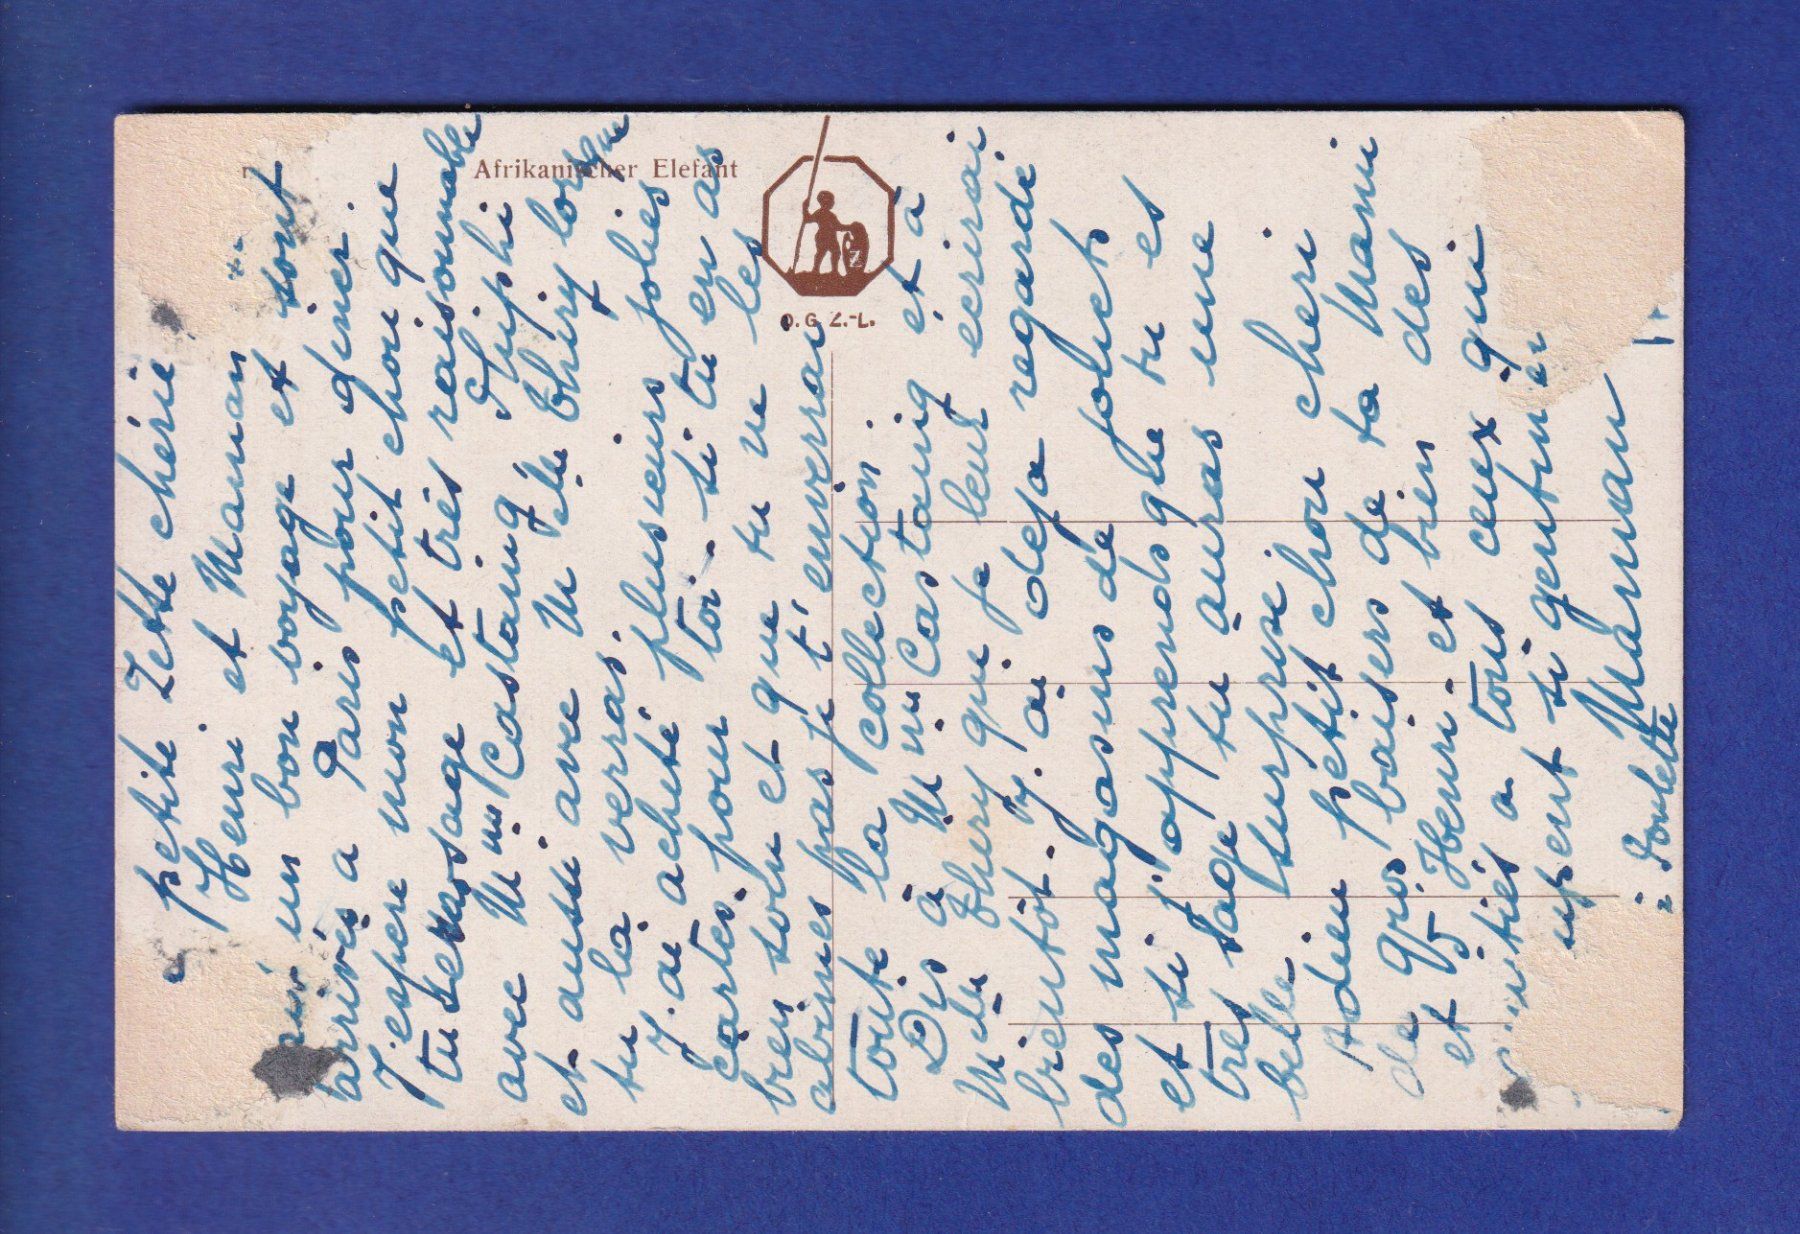 Afrikanischer Elefant
D. G. Z.-L.
petite Zette chérie
Henri et Maman sont
un bon voyage et
arrivés a Paris pour diner.
J'espere mon petit chou que
tu seras sage et très raisonnable
avec Mme Castaing Guiphi
et aussi avec Melle Thiry lorsque
tu la verras.
J. ai acheté plusieurs jolies
cartes. pour toi. si tu en as
bien soin et que tu ne les
abimes pas je t'enverrai
toute la collection.
Dis à Mme Castaing et à
Melle Thiry que je leur ecrirai
bientôt. J. ai deja regarde
des magasins de jouets
et si j'apprends que tu es
tres sage tu auras une
belle surprise
Adieu petit chou cheri
de gros baisers de ta Mami
et Henri. et bien des
et a tous ceux qui
si gentiment
Maman
à Poulette